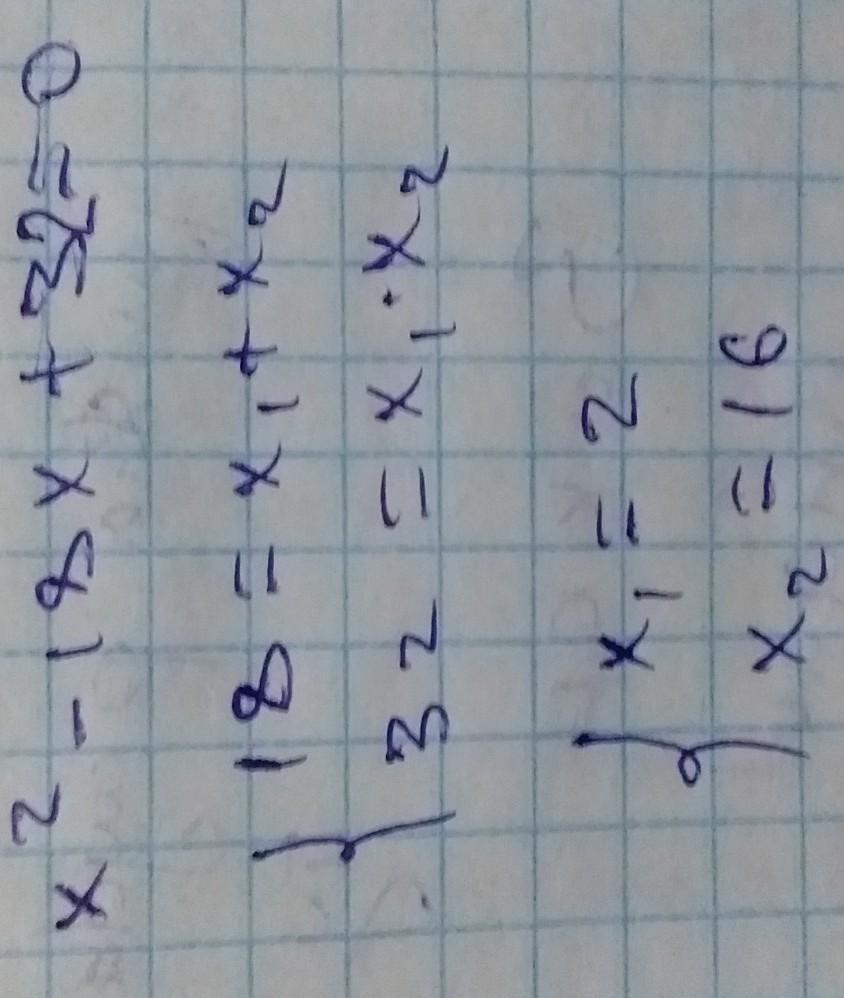 x² - 18x + 32 = 0
{ 18 = x₁ + x₂
32 = x₁ · x₂
{ x₁ = 2
x₂ = 16